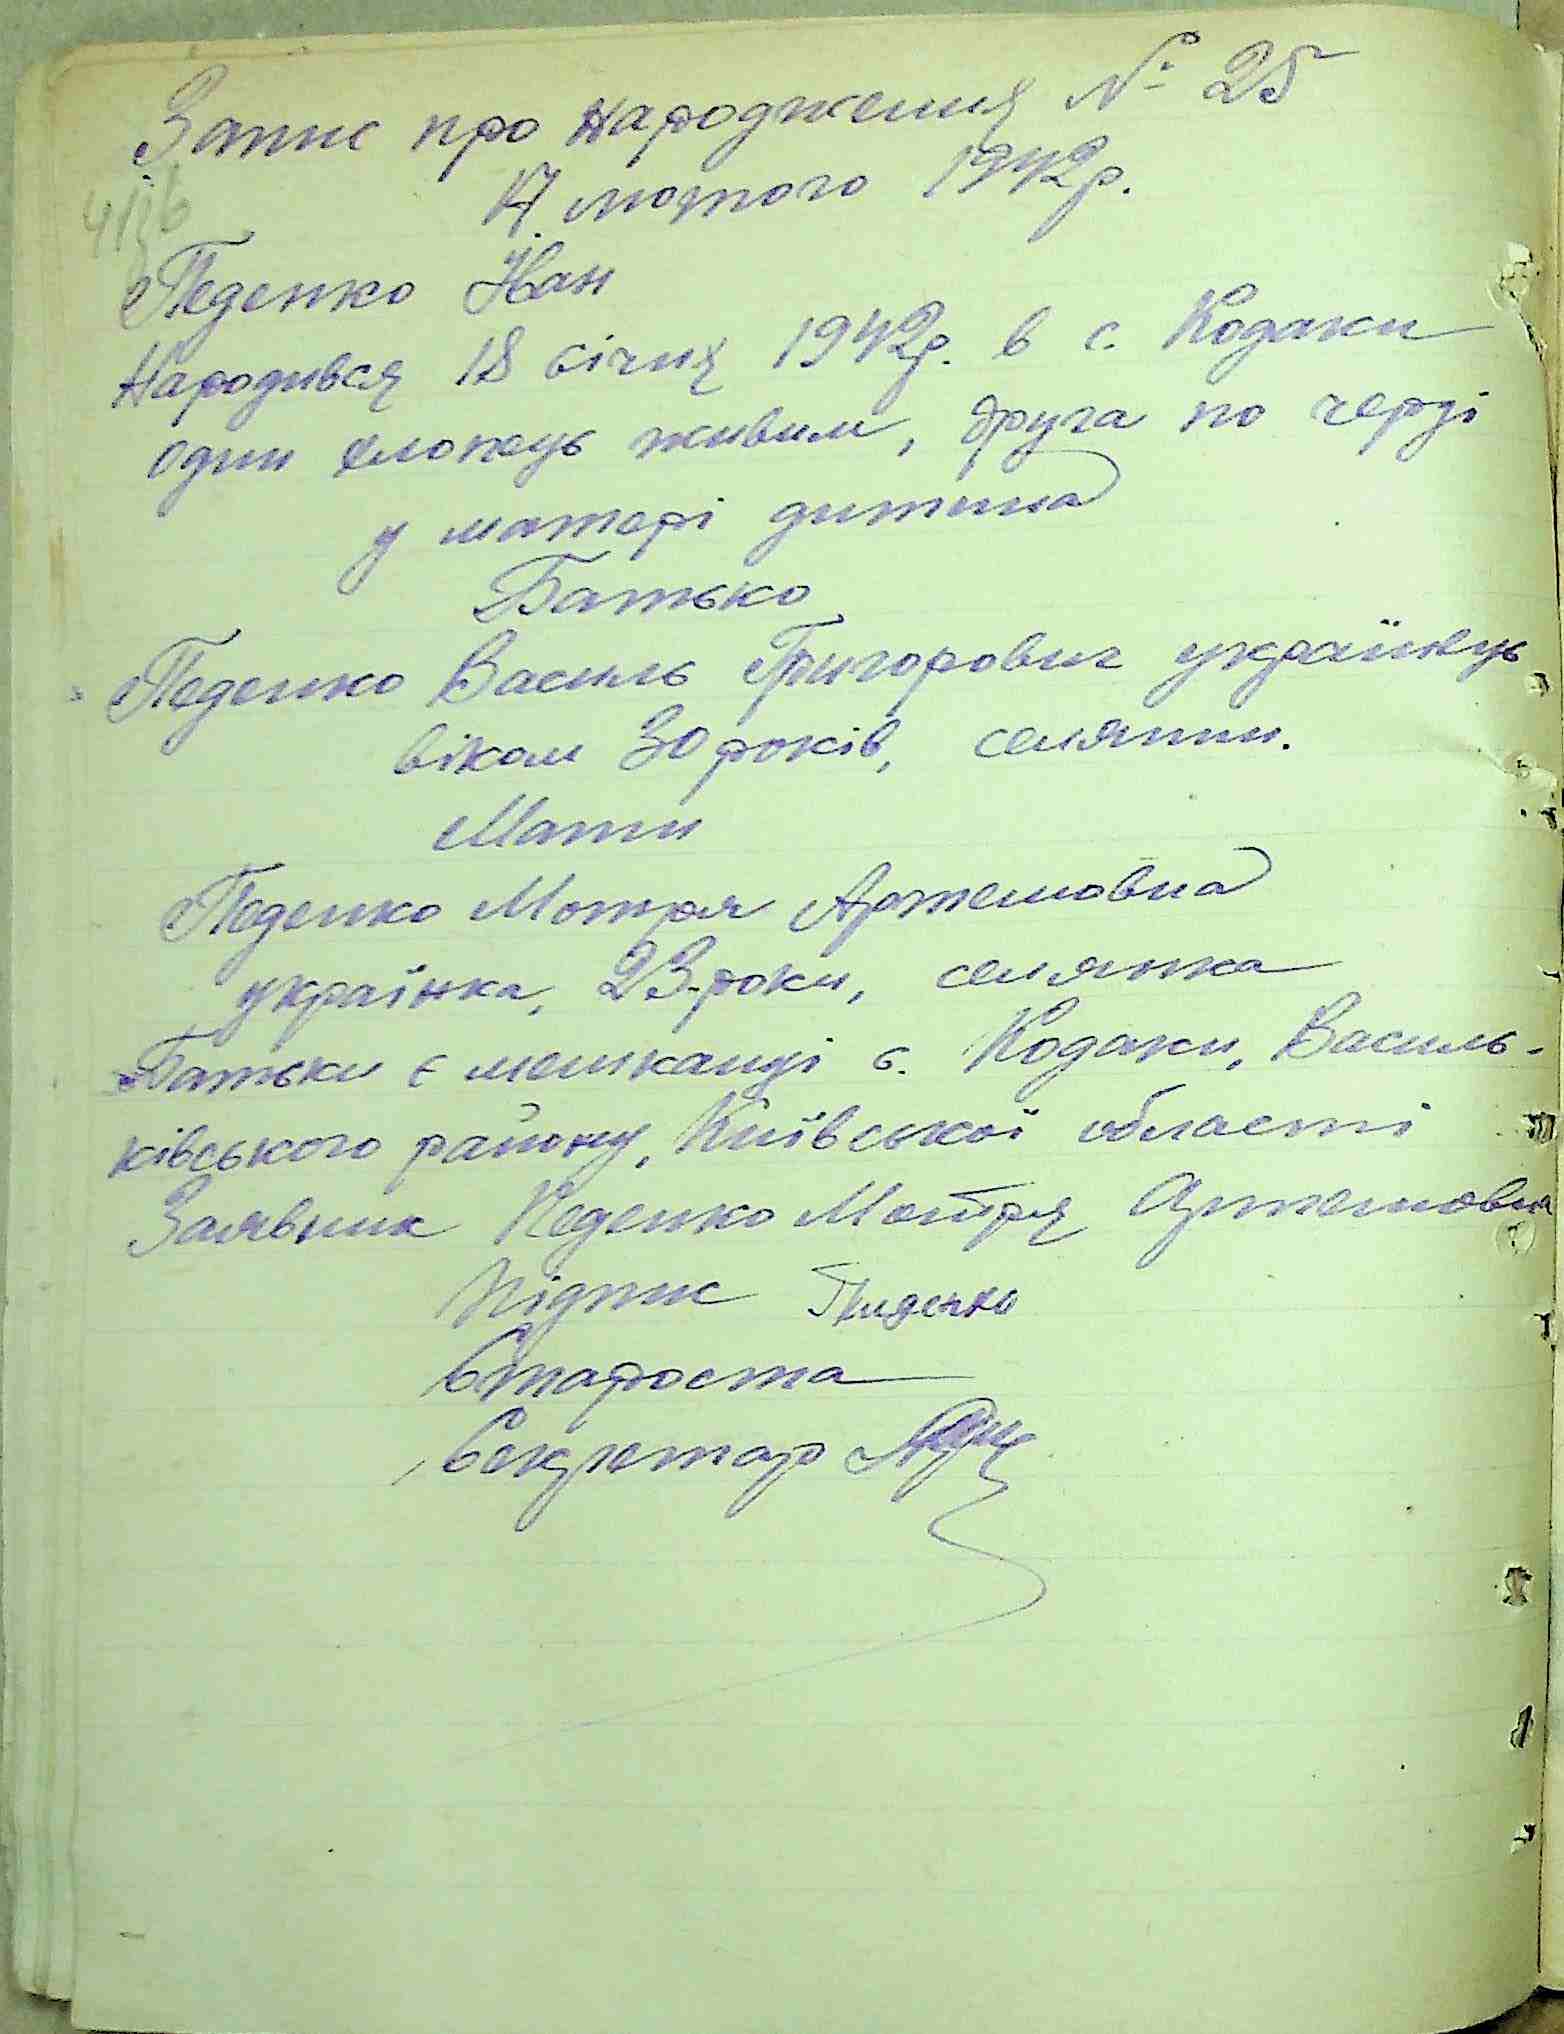 Запис про народження № 25
17 лютого 1942р.
Педенко Іван
Народився 18 січня 1942р. в с. Кодаки
один хлопець живим, друга по черзі
у матері дитина
Батько
Педенко Василь Григорович українець
віком 30 років, селянин.
Мати
Педенко Мотря Артемовна
українка, 23 роки, селянка
Батьки є мешканці с. Кодаки, Василь-
ківського району, Київської області
Заявник Педенко Мотря Артемовна
Підпис Педенко
Староста
Секретар